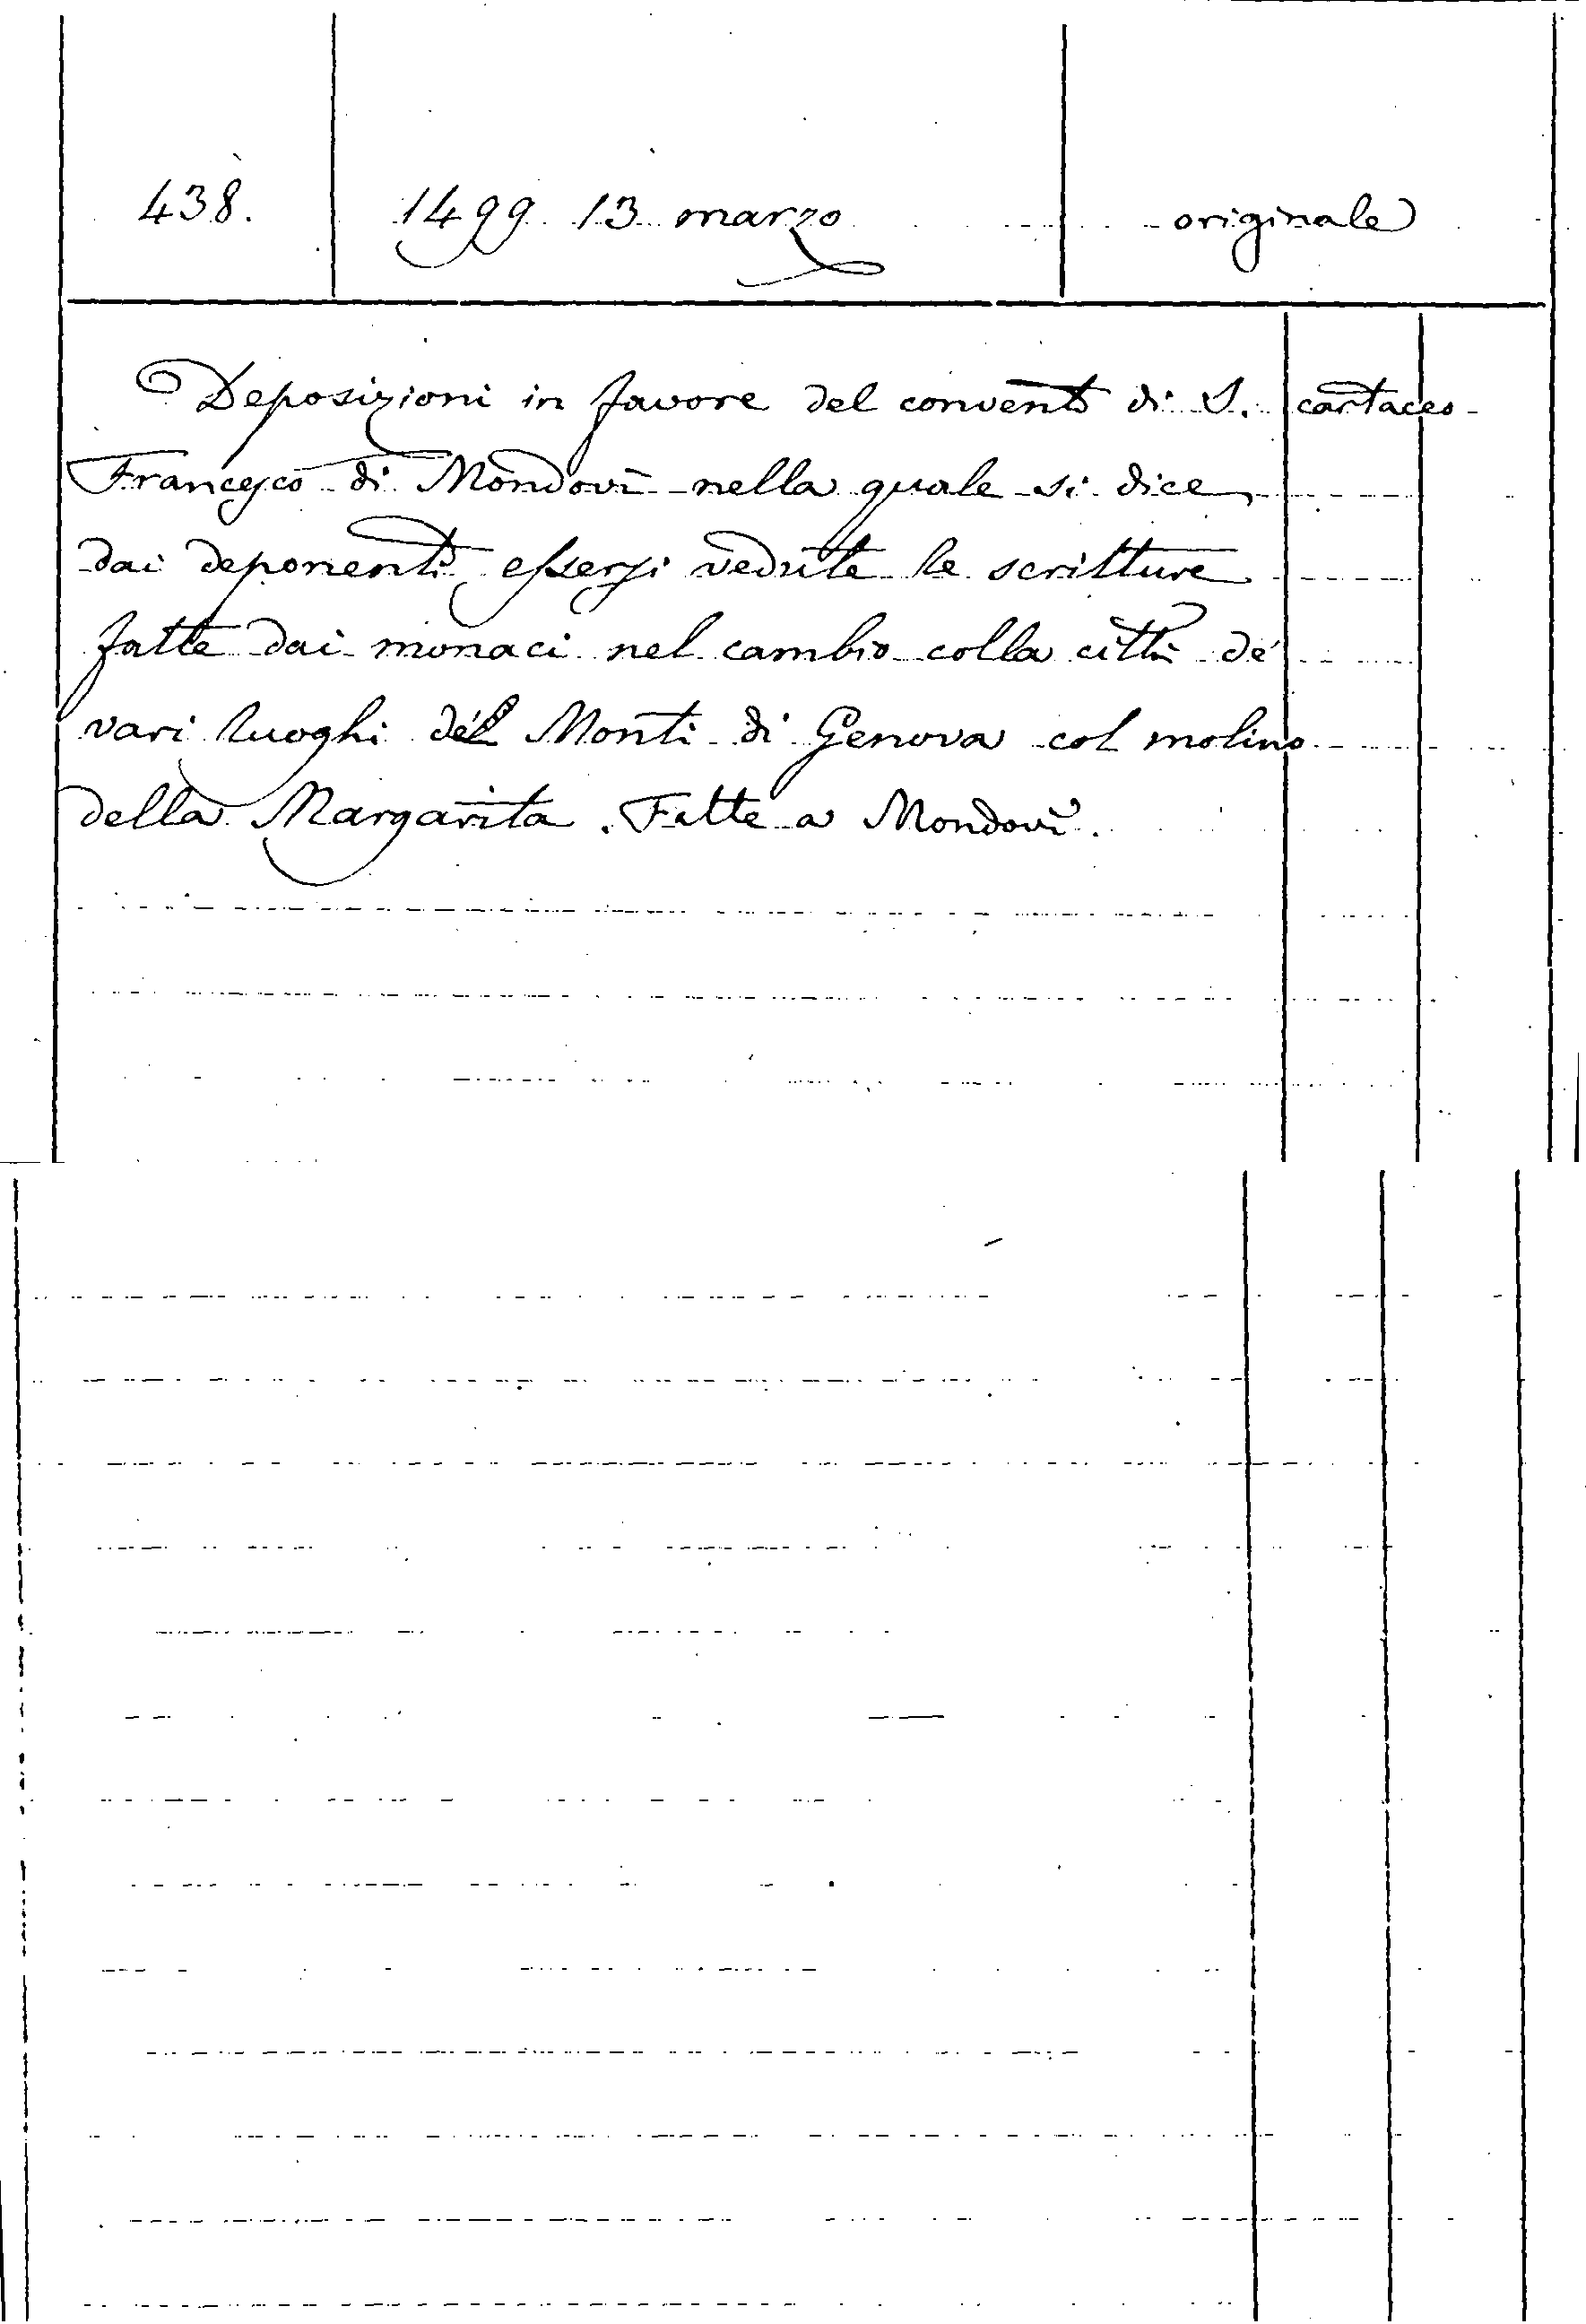 438. 1499. 13 marzo originale
Deposizioni in favore del convento di S. cartaceo
Francesco di Mondovì nella quale si dice
dai deponenti essersi vedute le scritture
fatte dai monaci nel cambio colla città de'
vari luoghi del Monti di Genova col molino
della Margarita. Fatte a Mondovì.